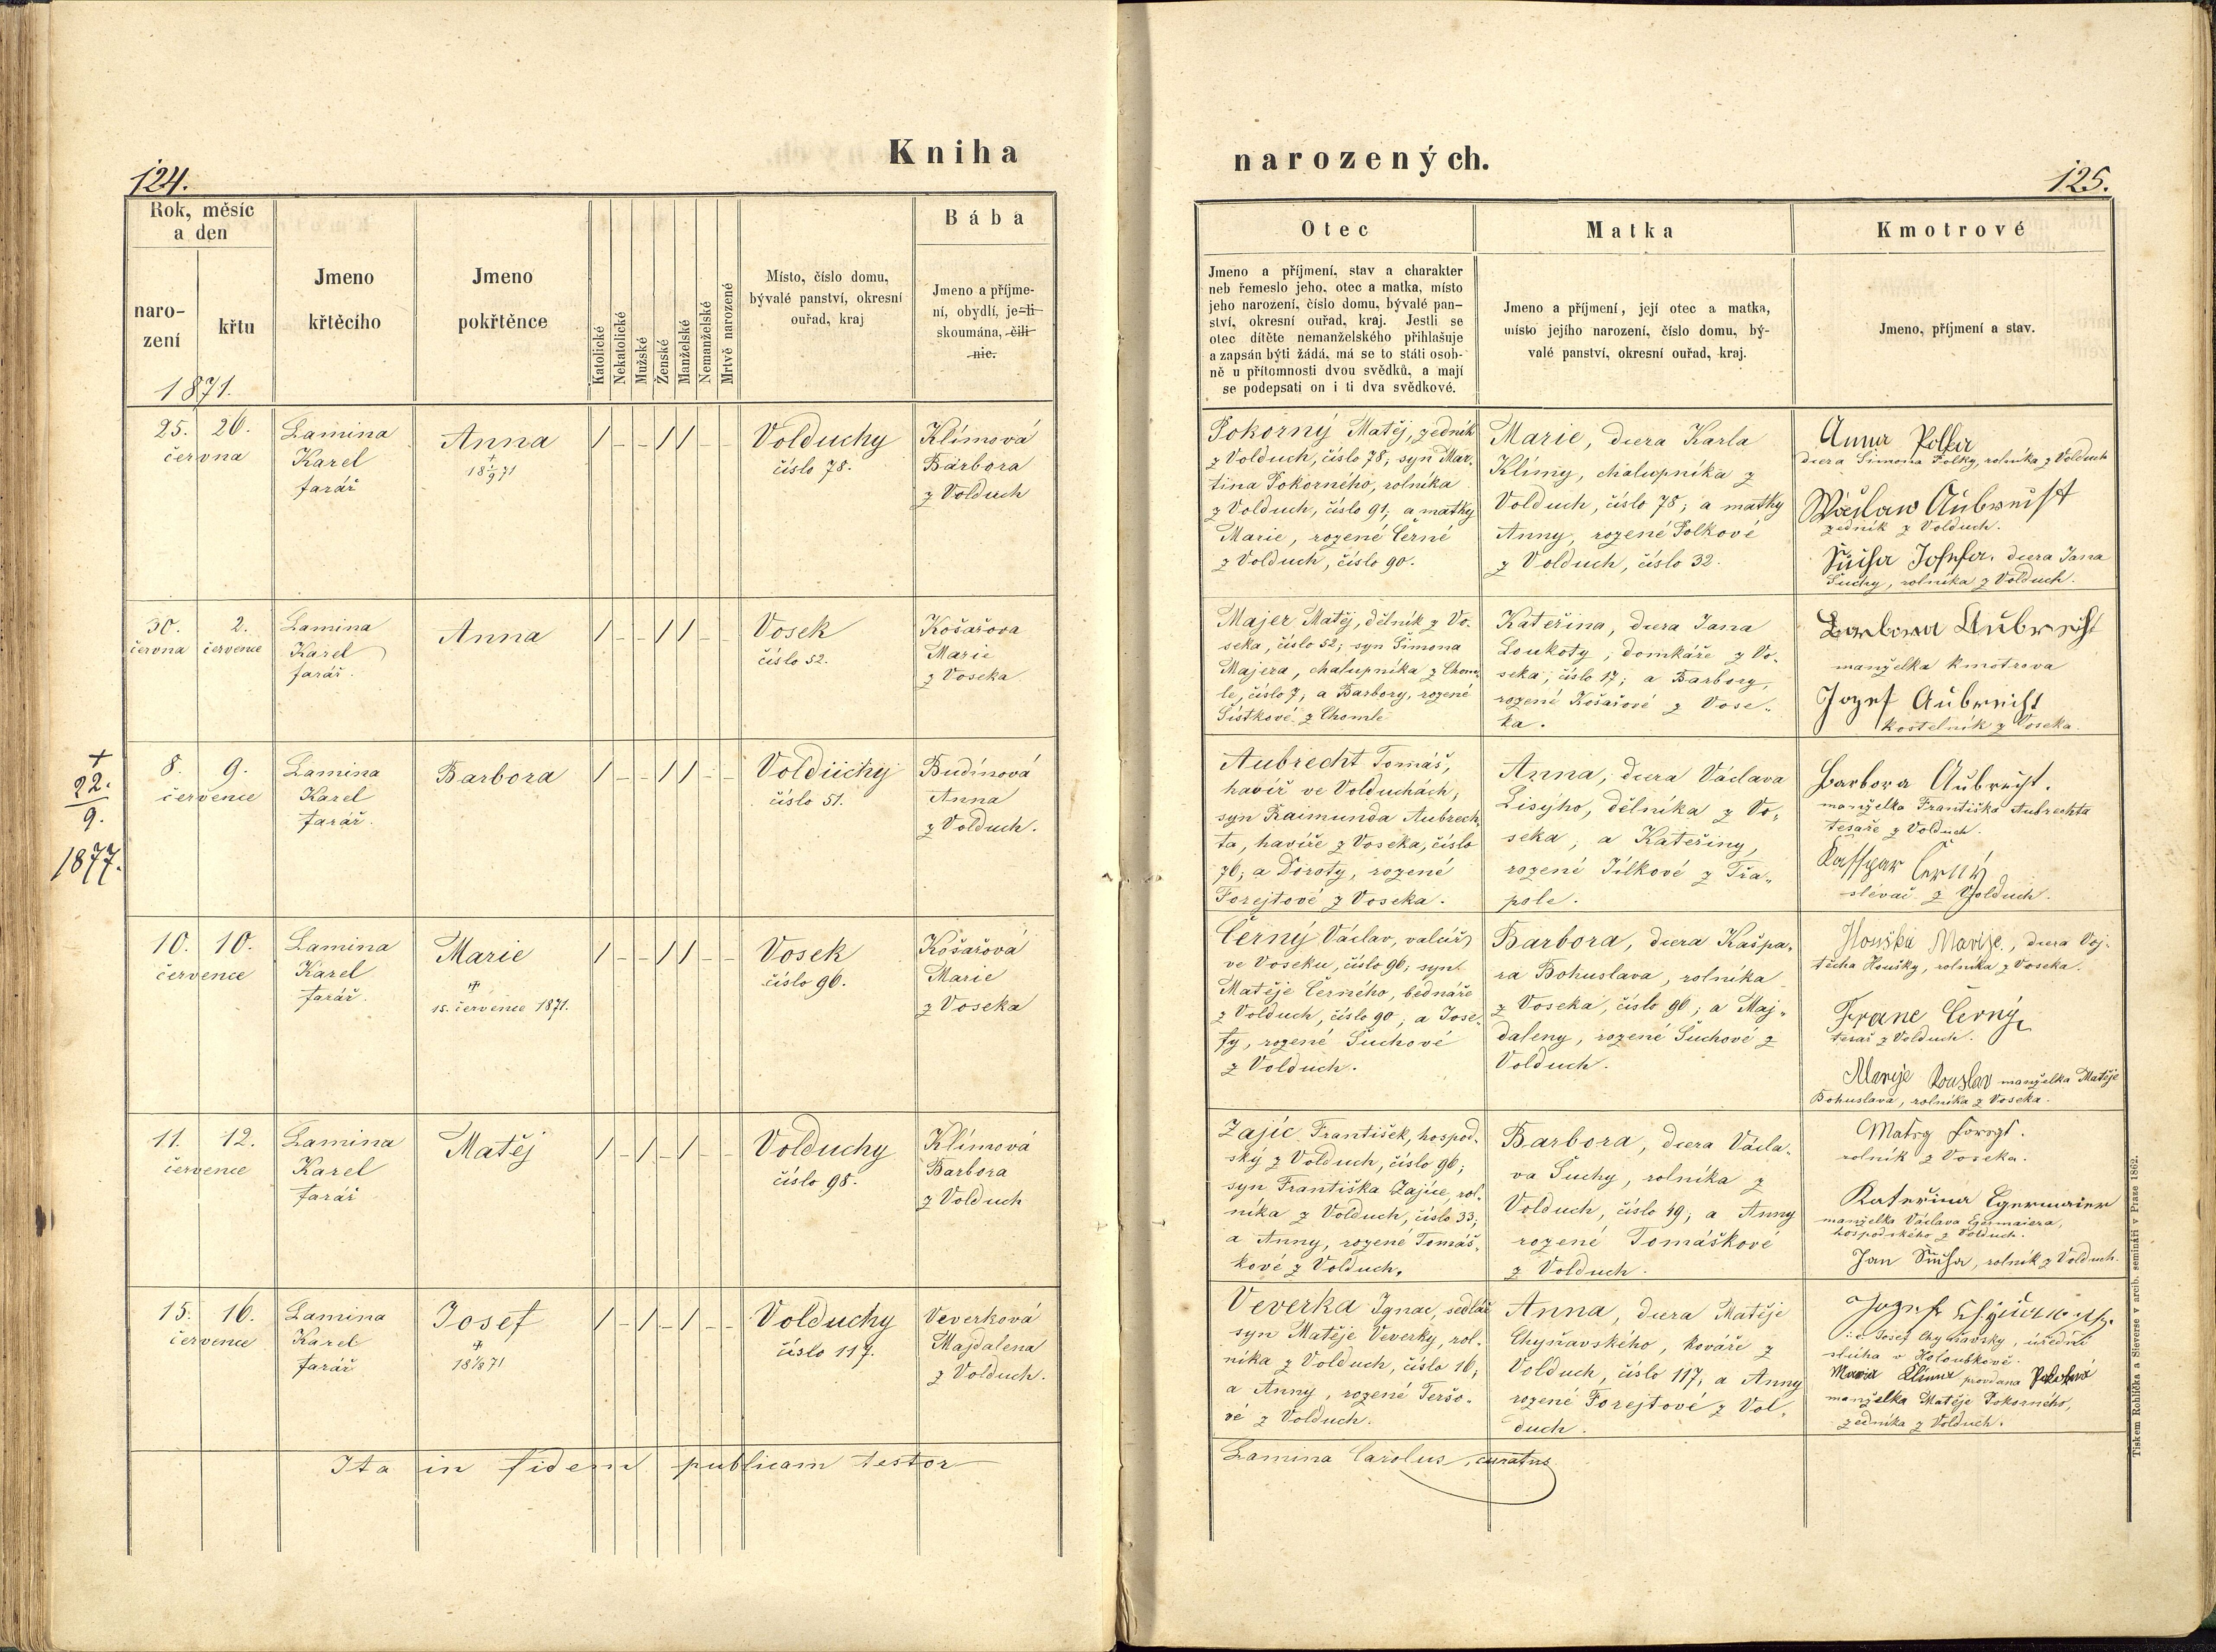 Kniha
124.
Rok, měsíc
a den
naro-
zení
křtu
1871.
Jmeno
křtěcího
Jmeno
pokřtěnce
Katolické
Nekatolické
Mužské
Ženské
Manželské
Nemanželské
Mrtvě narozené
Místo, číslo domu,
bývalé panství, okresní
ouřad, kraj
Bába
Jmeno a příjme-
ní, obydlí, je-li
skoumána, čili
nic.
25. 26.
června
Lamina
Karel
farář
Anna
+
18 1/9 71
/ - - / / - -
Volduchy
číslo 78.
Klímová
Barbora
z Volduch
30. 2.
června července
Lamina
Karel
farář.
Anna
/ - - / / - -
Vosek
číslo 52.
Košařova
Marie
z Voseka
+
22.
9.
1877.
8. 9.
července
Lamina
Karel
farář.
Barbora
/ - - / / - -
Volduchy
číslo 51.
Budínová
Anna
z Volduch.
10. 10.
července
Lamina
Karel
farář.
Marie
+
15. července 1871.
/ - - / / - -
Vosek
číslo 96.
Košařová
Marie
z Voseka
11. 12.
července
Lamina
Karel
farář
Matěj
/ - / - / - -
Volduchy
číslo 98.
Klímová
Barbora
z Volduch
15. 16.
července
Lamina
Karel
farář
Josef
+
18 1/8 71
/ - / - / - -
Volduchy
číslo 117.
Veverková
Majdalena
z Volduch.
Ita in fidem publicam testor
narozených.
125.
Otec
Jmeno a příjmení, stav a charakter
neb řemeslo jeho, otec a matka, místo
jeho narození, číslo domu, bývalé pan-
ství, okresní ouřad, kraj. Jestli se
otec dítěte nemanželského přihlašuje
a zapsán býti žádá, má se to státi osob-
ně u přítomnosti dvou svědků, a mají
se podepsati on i ti dva svědkové.
Matka
Jmeno a příjmení, její otec a matka,
místo jejího narození, číslo domu, bý-
valé panství, okresní ouřad, kraj.
Kmotrové
Jmeno, příjmení a stav.
Pokorný Matěj, zedník
z Volduch, číslo 78; syn Mar-
tina Pokorného, rolníka
z Volduch, číslo 91; a matky
Marie, rozené Černé
z Volduch, číslo 90.
Marie, dcera Karla
Klímy, chalupníka z
Volduch, číslo 78; a matky
Anny, rozené Polkové
z Volduch, číslo 32.
Anna Polka
dcera Šimona Polky, rolníka z Volduch
Wáclaw Aubrecht
zedník z Volduch.
Sucha Josefa. dcera Jana
Suchy, rolníka z Volduch.
Majer Matěj, dělník z Vo-
seka, číslo 52; syn Šimona
Majera, chalupníka z Chom-
le, číslo 7; a Barbory, rozené
Šístkové z Chomle
Kateřina, dcera Jana
Loukoty, domkáře z Vo-
seka, číslo 17; a Barbory,
rozené Košařové z Vose-
ka.
Barbora Aubrecht
manželka kmotrova
Jozef Aubrecht
kostelník z Voseka
Aubrecht Tomáš,
havíř ve Volduchách;
syn Raimunda Aubrech-
ta, havíře z Voseka, číslo
76; a Doroty, rozené
Forejtové z Voseka.
Anna, dcera Václava
Lisýho, dělníka z Vo-
seka, a Kateřiny,
rozené Jílkové z Třa-
pole.
Barbora Aubrecht.
manželka Františka Aubrechta
tesaře z Volduch.
Kasspar Černý
slévač z Volduch.
Černý Václav, valcíř
ve Voseku, číslo 96; syn
Matěje Černého, bednáře
z Volduch, číslo 90; a Jose-
fy, rozené Suchové
z Volduch.
Barbora, dcera Kašpa-
ra Bohuslava, rolníka
z Voseka, číslo 96; a Maj-
daleny, rozené Suchové z
Volduch.
Houška Marije, dcera Voj-
těcha Houšky, rolníka z Voseka.
Franc Černý,
tesař z Volduch.
Marije Bouslav manželka Matěje
Bohuslava, rolníka z Voseka.
Zajíc František, hospod-
ský z Volduch, číslo 96;
syn Františka Zajíce, rol-
níka z Volduch, číslo 33;
a Anny, rozené Tomáš-
kové z Volduch.
Barbora, dcera Václa-
va Suchy, rolníka z
Volduch, číslo 49; a Anny
rozené Tomáškové
z Volduch.
Matey Foregt.
rolník z Voseka.
Kateřina Egermaier
manželka Václava Egermaiera,
hospodského z Volduch.
Jan Sucha, rolník z Volduch.
Veverka Ignac, sedlář
syn Matěje Veverky, rol-
níka z Volduch, číslo 16;
a Anny, rozené Teršo-
vé z Volduch.
Anna, dcera Matěje
Chyňavského, kováře z
Volduch, číslo 117, a Anny
rozené Forejtové z Vol-
duch.
Jozef
Josef Chyňavský, úřední
sluha v Holoubkově.
Maria Klíma provdana Pokorná
manželka Matěje Pokorného,
zedníka z Volduch.
Lamina Carolus, curatus
Tiskem Rohlíčka a Sieverse v arcib. semináři v Praze 1862.